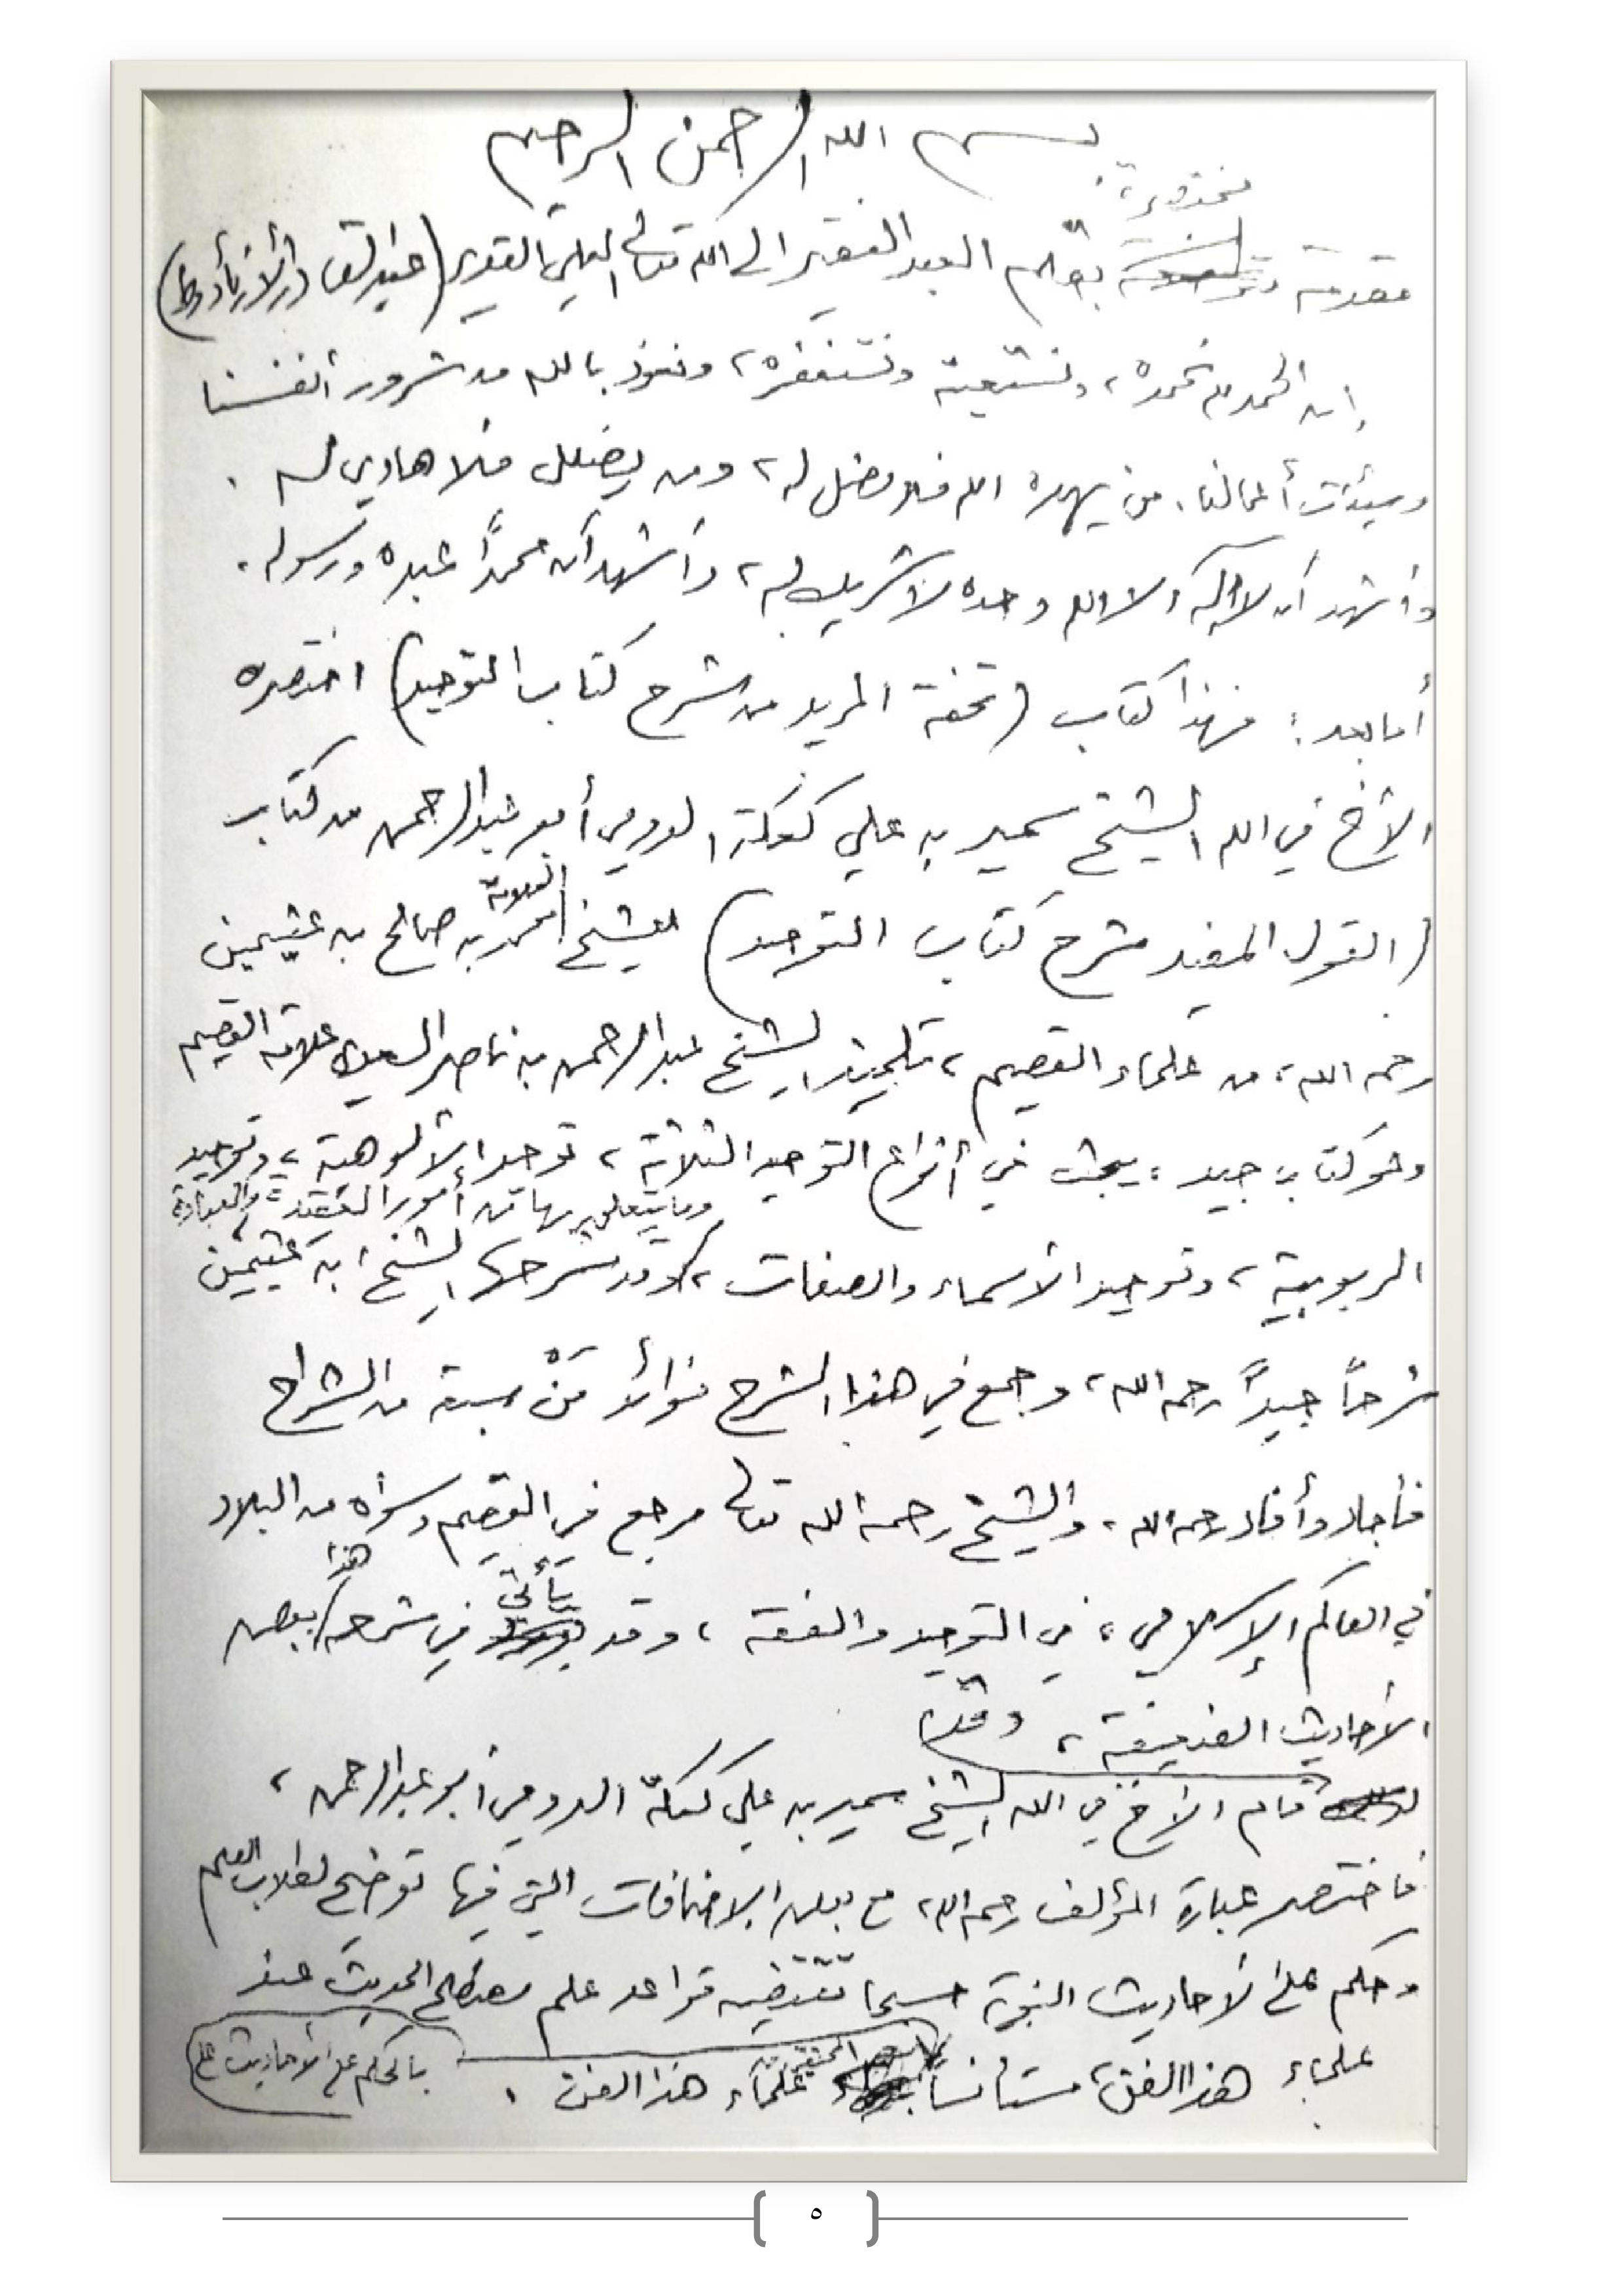 بسم الله الرحمن الرحيم
مقدمة مختصرة بقلم العبد الفقير إلى الله تعالى العلي القدير (عبد القادر الأرناؤوط)
إن الحمد لله نحمده، ونستعينه ونستغفره، ونعوذ بالله من شرور أنفسنا
وسيئات أعمالنا. من يهده الله فلا مضل له، ومن يضلل فلا هادي له.
وأشهد أن لا إله إلا الله وحده لا شريك له، وأشهد أن محمداً عبده ورسوله.
أما بعد: فهذا كتاب (تحفة المريد من شرح كتاب التوحيد) اختصره
الأخ في الله الشيخ سمير بن علي كعكة الدومي أبو عبدالرحمن من كتاب
(القول المفيد شرح كتاب التوحيد) للشيخ العلامة محمد بن صالح بن عثيمين
رحمه الله، من علماء القصيم، تلميذ الشيخ عبد الرحمن بن ناصر السعدي علامة القصيم
وهو كتاب جيد، يبحث في أنواع التوحيد الثلاثة، توحيد الألوهية، وتوحيد
الربوبية، وتوحيد الأسماء والصفات، وما يتعلق بها من أمور العقيدة والعبادة، وقد شرحها الشيخ ابن عثيمين
شرحاً جيداً رحمه الله، وجمع في هذا الشرح فوائد مَنْ سبقه من الشراح
فأجاد وأفاد رحمه الله، والشيخ رحمه الله تعالى مرجع في القصيم وسواه من البلاد
في العالم الإسلامي، في التوحيد والفقه، وقد يأتي في شرحه هذا بعض
الأحاديث الضعيفة، وقد
قام الأخ في الله الشيخ سمير بن علي كعكة الدومي أبو عبدالرحمن،
فاختصر عبارة المؤلف رحمه الله، مع بعض الإضافات التي فيها توضيح لطلاب العلم
وحكم على الأحاديث النبوية حسبما تقتضيه قواعد علم مصطلح الحديث عند
علماء هذا الفن، مستأنساً بالحكم على الأحاديث علماء هذا الفن.
٥